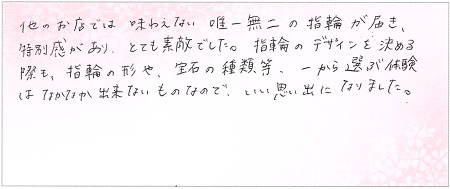 他のお店では味わえない唯一無二の指輪が届き、
特別感があり、とても素敵でした。指輪のデザインを決める
際も、指輪の形や、宝石の種類等、一から選ぶ体験
はなかなか出来ないものなので、いい思い出になりました。